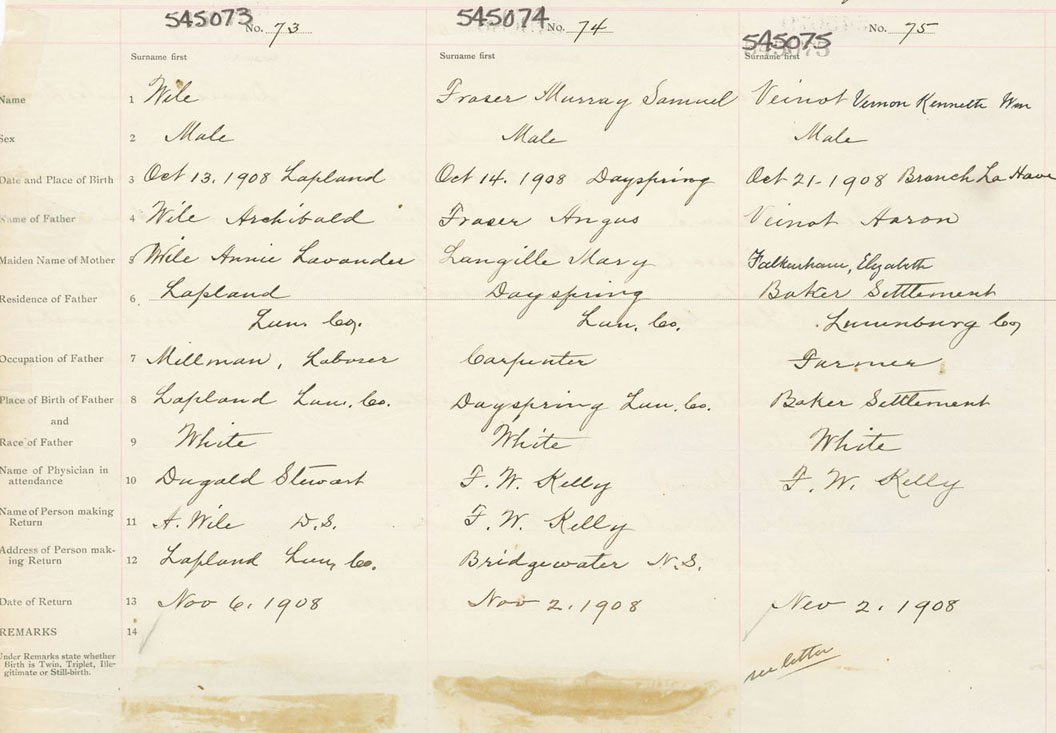 545073 No. 73 545074 No. 74 545075 No. 75
Surname first Surname first Surname first
Name 1 Wile Fraser Murray Samuel Veinot Vernon Kenneth Wm
Sex 2 Male Male Male
Date and Place of Birth 3 Oct 13. 1908 Lapland Oct 14. 1908 Dayspring Oct 21-1908 Branch La Have
Name of Father 4 Wile Archibald Fraser Angus Veinot Aaron
Maiden Name of Mother 5 Wile Annie Lavander Langille Mary Falkenham, Elizabeth
Residence of Father 6 Lapland Dayspring Baker Settlement
Lun. Co. Lun. Co. Lunenburg Co
Occupation of Father 7 Millman, Laborer Carpenter Farmer
Place of Birth of Father 8 Lapland Lun. Co. Dayspring Lun. Co. Baker Settlement
and
Race of Father 9 White White White
Name of Physician in
attendance 10 Dugald Stewart F. W. Kelly F. W. Kelly
Name of Person making
Return 11 A. Wile D.S. F. W. Kelly
Address of Person mak-
ing Return 12 Lapland Lun. Co. Bridgewater N.S.
Date of Return 13 Nov 6. 1908 Nov 2. 1908 Nov 2. 1908
REMARKS 14
Under Remarks state whether
Birth is Twin, Triplet, Ille-
gitimate or Still-birth.
see letter